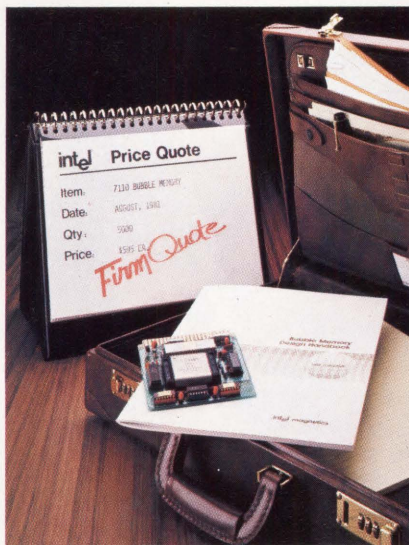 intel Price Quote
Item: 7110 BUBBLE MEMORY
Date: AUGUST,
Qty: 5000
Price: EA.
Firm Quote
Bubble Memory
Design Handbook
intel magnetics